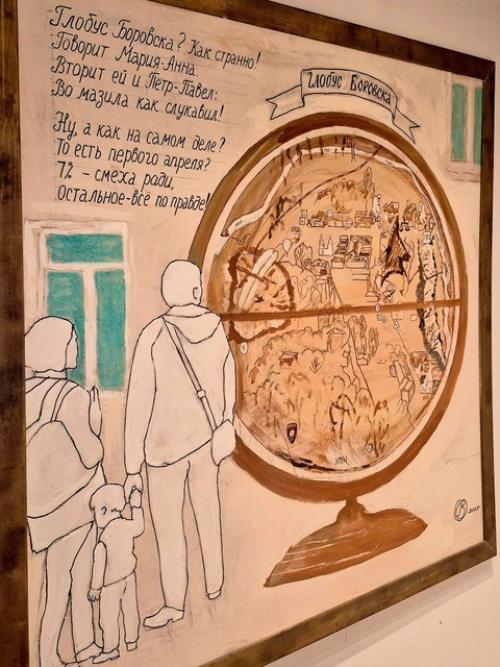 Глобус Боровска? Как странно!
Говорит Мария-Анна.
Вторит ей и Петр-Павел:
Во мазила как слукавил!
Ну, а как на самом деле?
То есть первого апреля?
7% - смеха ради,
Остальное-всё по правде!
Глобус Боровска